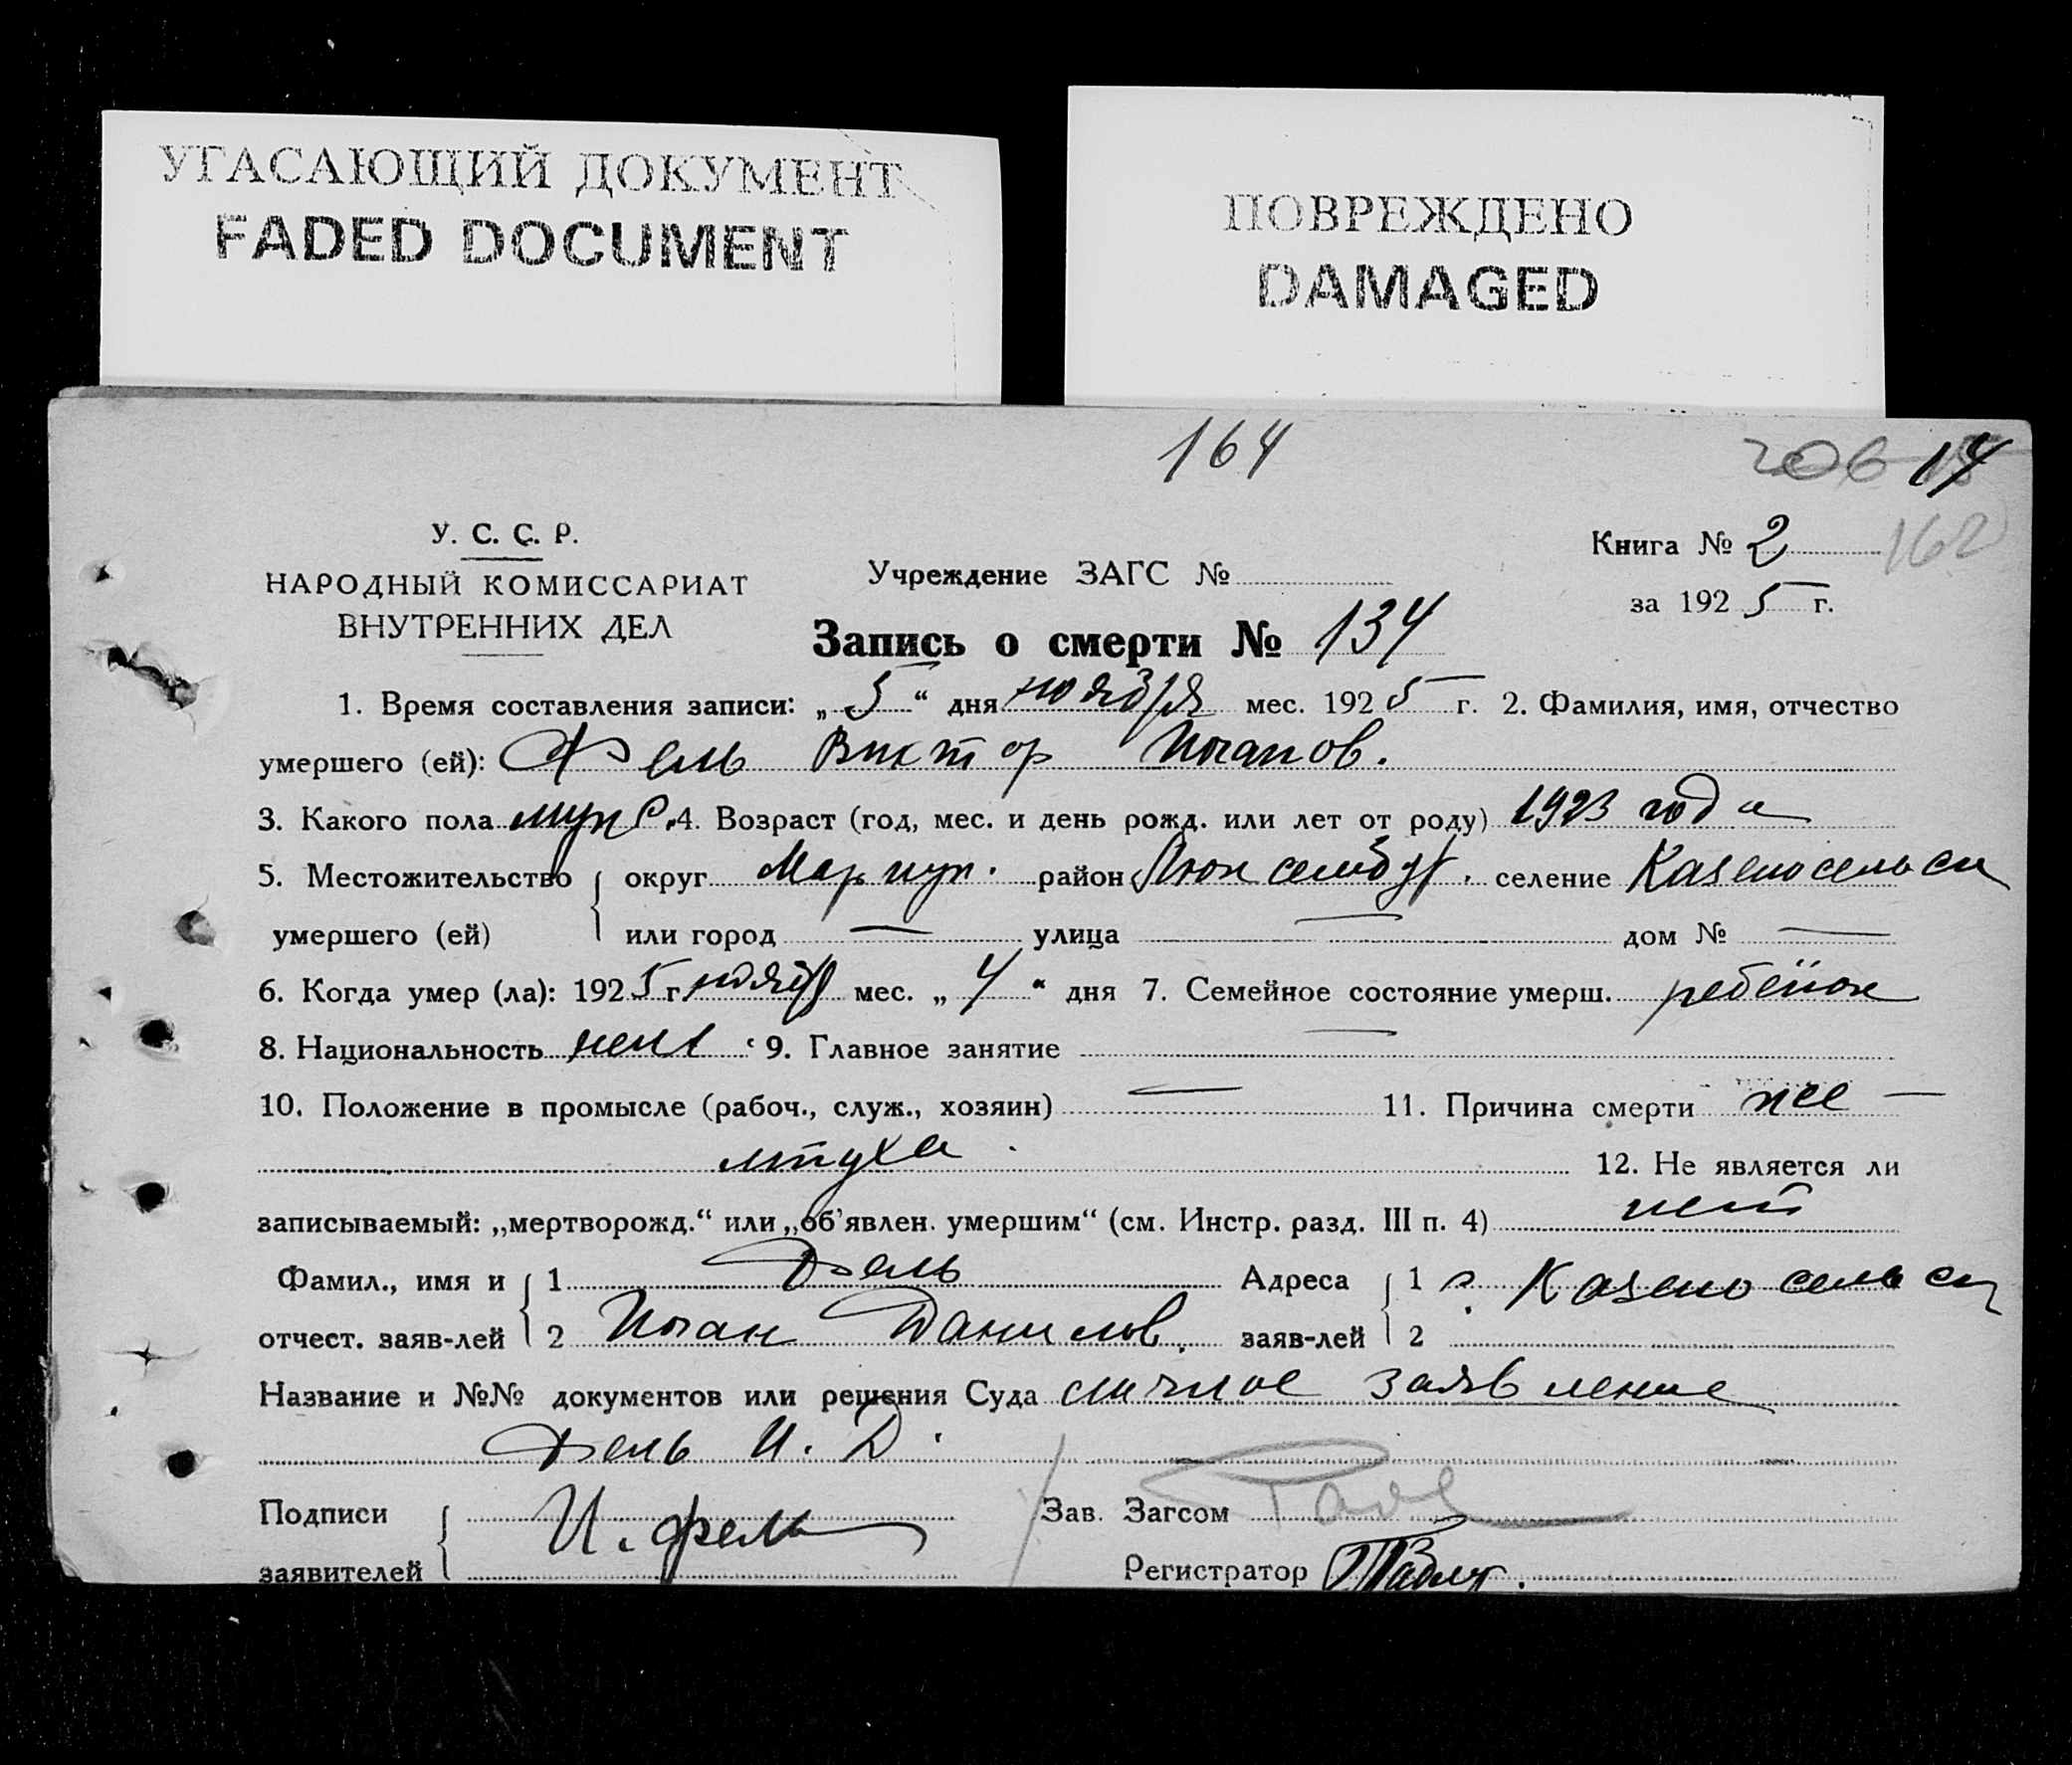 УГАСАЮЩИЙ ДОКУМЕНТ
FADED DOCUMENT
ПОВРЕЖДЕНО
DAMAGED
164
206 14
162
У. С. С. Р.
НАРОДНЫЙ КОМИССАРИАТ
ВНУТРЕННИХ ДЕЛ
Учреждение ЗАГС №
Книга № 2
за 1925 г.
Запись о смерти № 134
1. Время составления записи: „5“ дня ноября мес. 1925 г. 2. Фамилия, имя, отчество
умершего (ей): Фель Виктор Иоганов.
3. Какого пола муж. 4. Возраст (год, мес. и день рожд. или лет от роду) 1923 года
5. Местожительство умершего (ей) { округ Мариуп. район Люксембург. селение Казеносельск
или город — улица — дом № —
6. Когда умер (ла): 1925 г. ноябр мес. „4“ дня 7. Семейное состояние умерш. ребёнок
8. Национальность нем. 9. Главное занятие —
10. Положение в промысле (рабоч., служ., хозяин) — 11. Причина смерти же—
лтуха. 12. Не является ли
записываемый: „мертворожд.“ или „об'явлен. умершим“ (см. Инстр. разд. III п. 4) нет
Фамил., имя и { 1 Фель Адреса { 1 с. Казеносельск
отчест. заяв-лей 2 Иоган Данилов. заяв-лей 2
Название и №№ документов или решения Суда личное заявление
Фель И. Д.
Подписи заявителей { И. Фель
Зав. Загсом
Регистратор